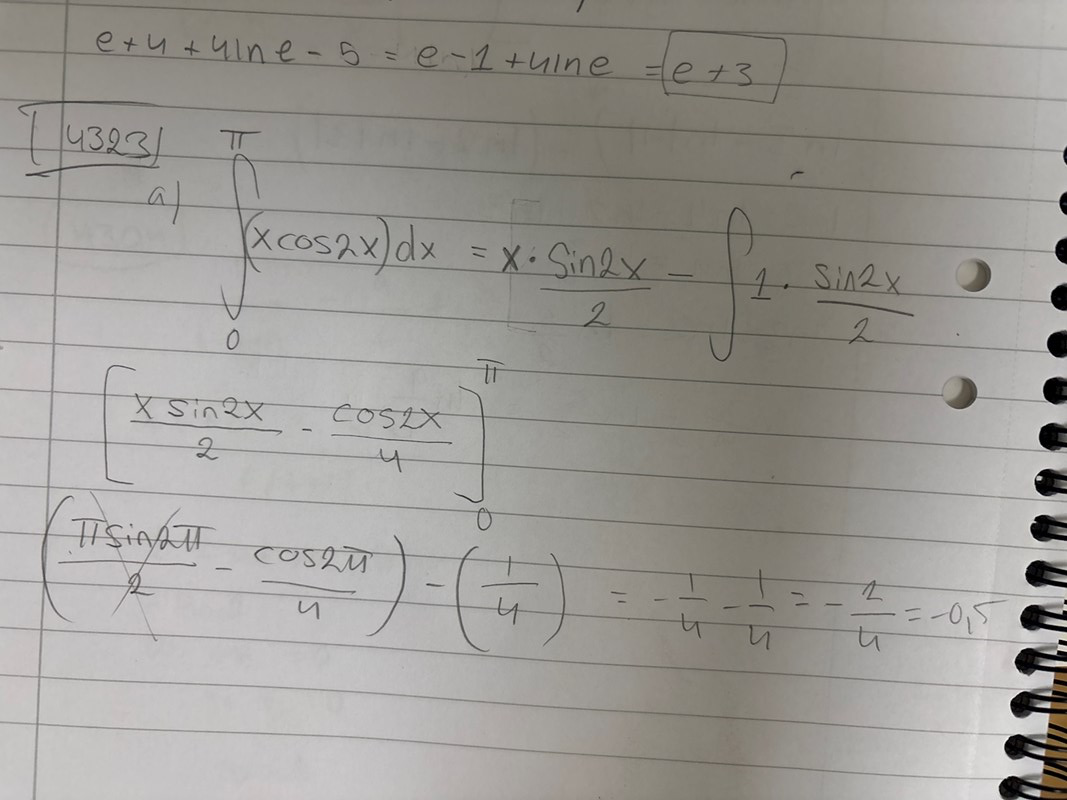 e+4+4lne-5 = e-1+4lne = e+3
4323
a) ∫₀^π (xcos2x)dx = x·sin2x/2 - ∫1·sin2x/2
[x sin2x/2 - cos2x/4]₀^π
(πsin2π/2 - cos2π/4) - (1/4) = -1/4 - 1/4 = -2/4 = -0,5